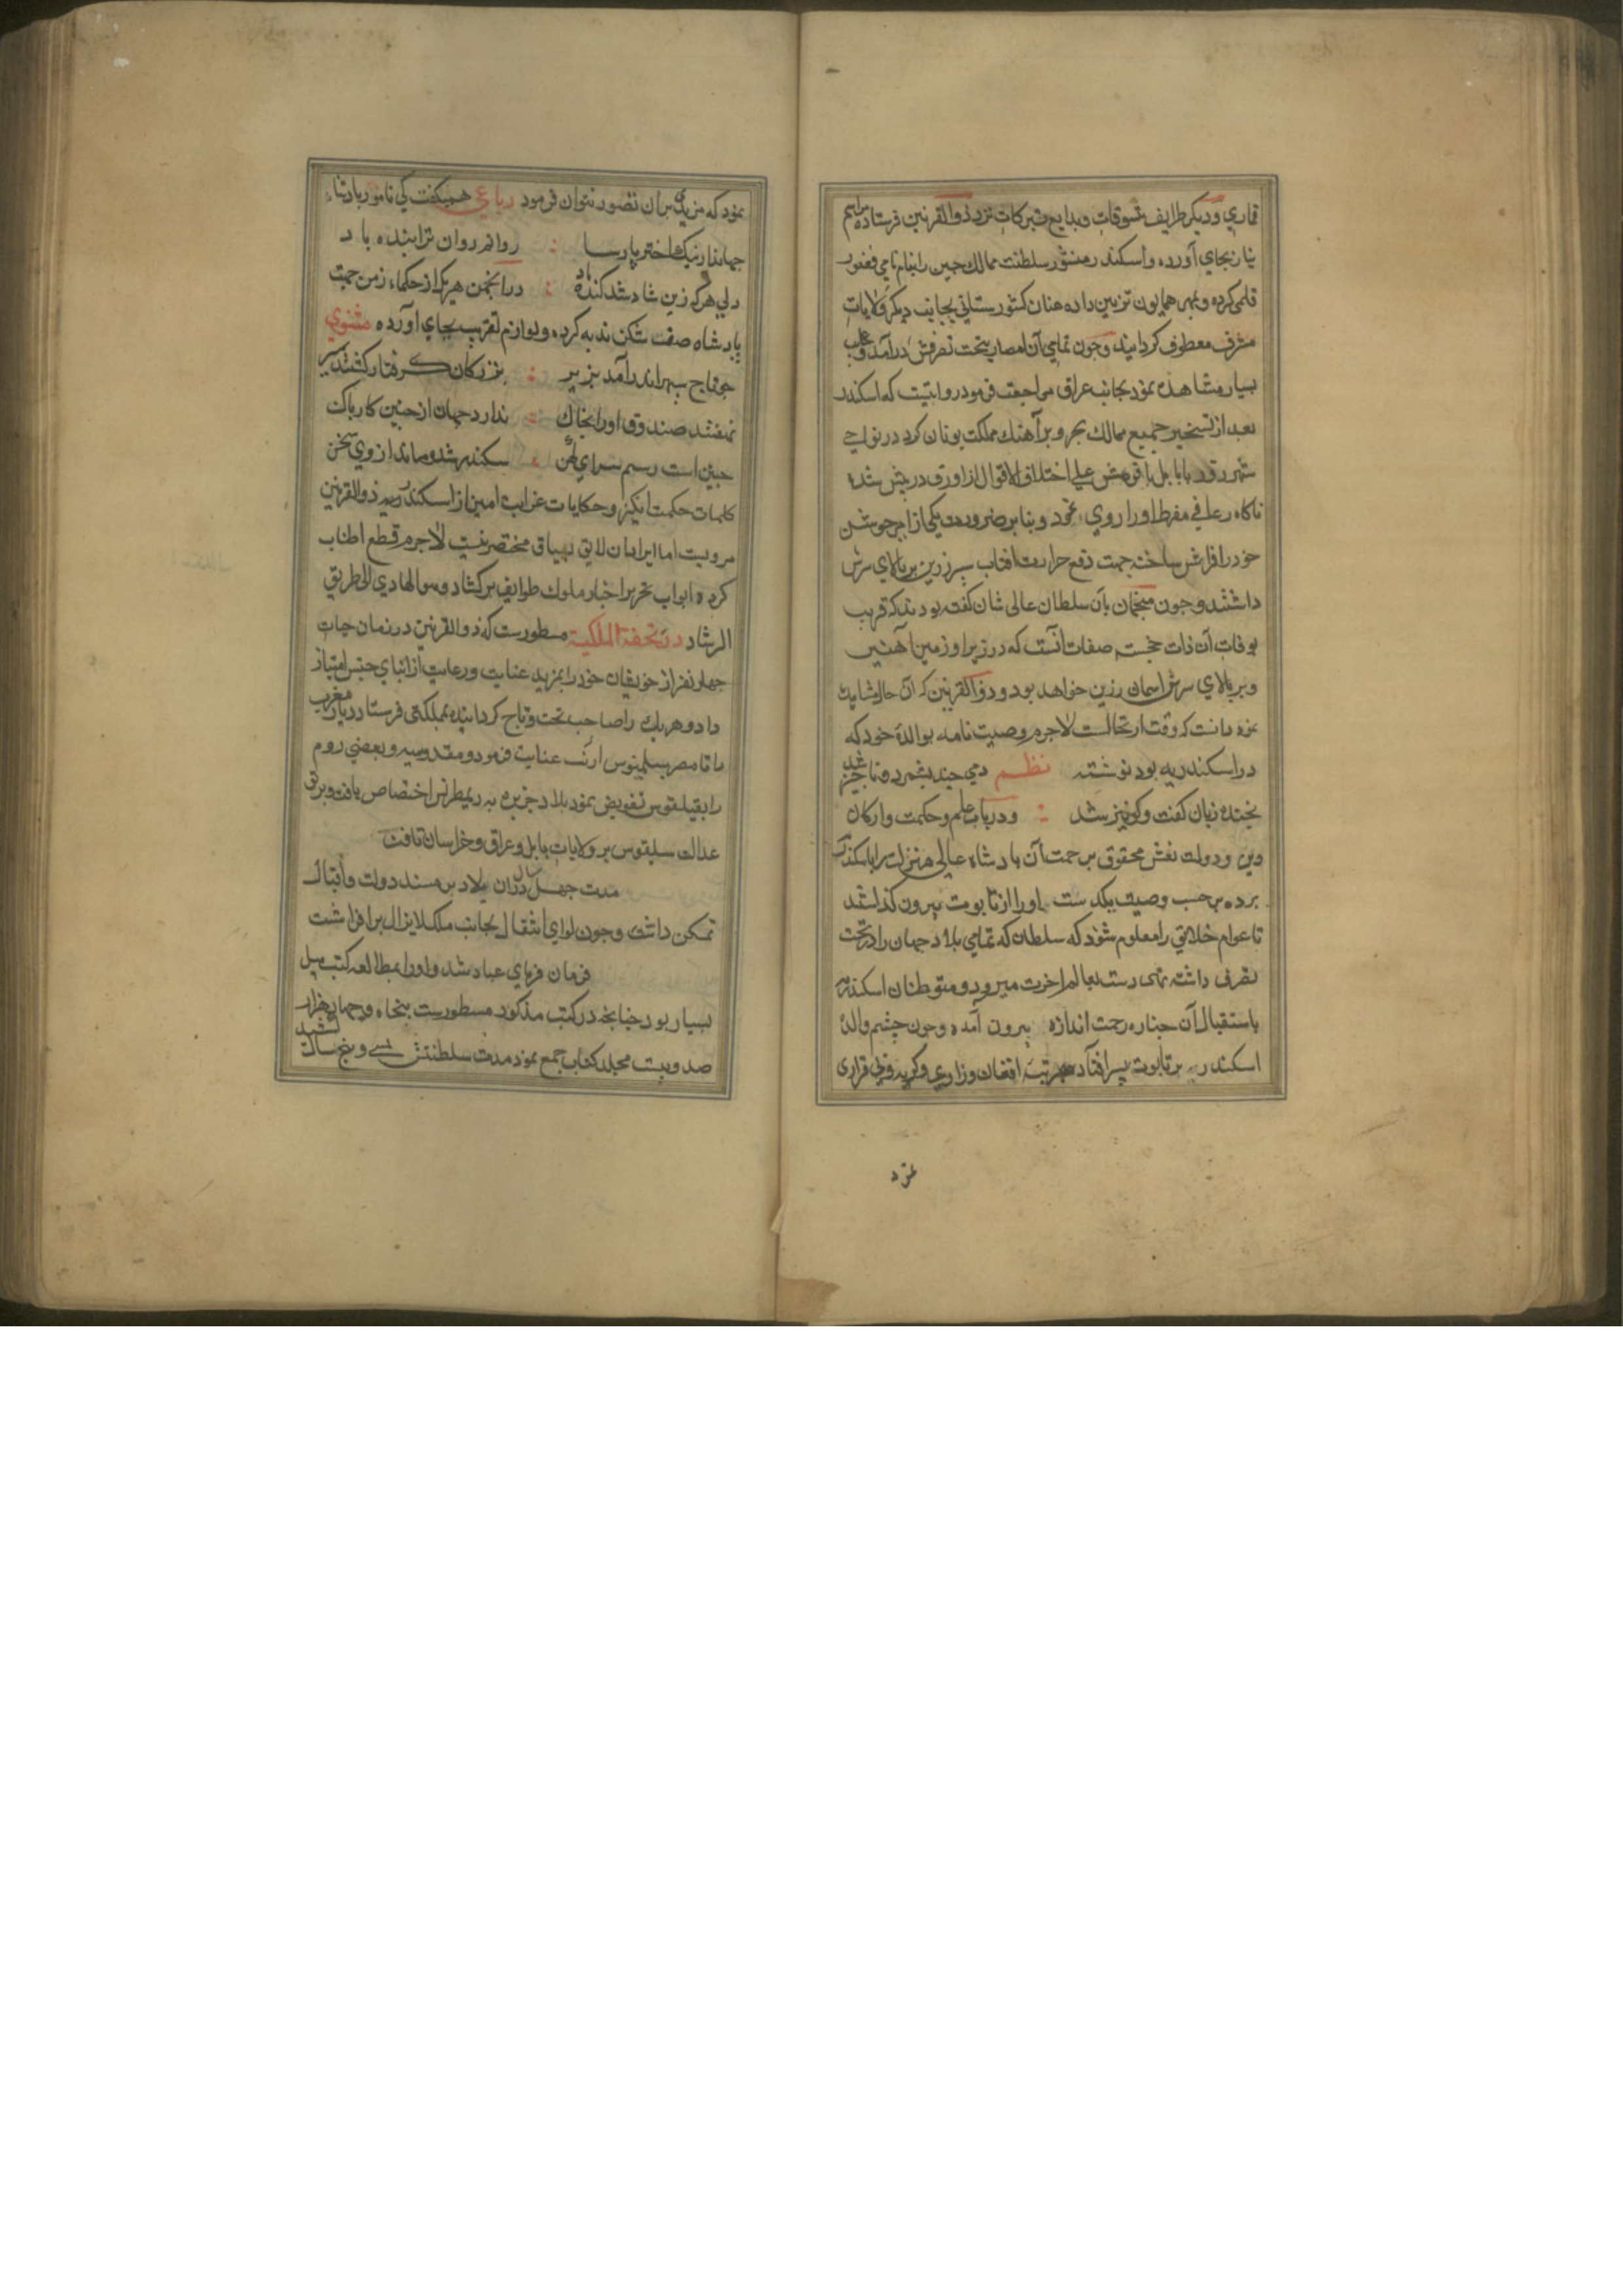 قماري و دیکر طرایف تنسوقات و بدایع تبرکات نزد ذوالقرنین فرستاده مراسم
نیاز بجاي آورده و اسکندر منشور سلطنت ممالك چین را بنام نامي فغفور
قلمی کرده و بمهر همایون تزیین داده عنان کشورستاني بجانب دیکر ولایات
مشرق معطوف کردانید و جون تمامي آن امصار بتحت تصرفش درآمد و عجایب
بسیار مشاهده نمود بجانب عراق مراجعت فرمود روایتست که اسکندر
بعد از تسخیر جمیع ممالك بحر و بر آهنك مملکت یونان کرد در نواحي
شهر زور یا بابل یا قومش علي اختلاف الاقوال از اورق درپیش شده
ناکاه رعافي مفرط او را روي نمود و بنابر ضرورت یکي از امرا جوشن
خود را فراش ساخته جهت دفع حرارت افتاب سپر زرین بر بالاي سرش
داشتند و جون منجمان بآن سلطان عالی شان کفته بودند که قریب
بوفات آن ذات خجسته صفات آنست که در زیر او زمین آهنین
و بر بالاي سرش اسمان زرین خواهد بود و ذوالقرنین که ان حال مشاهده
نمود دانست که وقت ارتحالست لاجرم وصیت نامه بوالدهٔ خود که
در اسکندریه بود نوشته نظم دمي چند بشمرد و ناچیز شد
بخنده زبان کفت و کو نیز شد و درباب علم و حکمت و ارکان
دین و دولت نعش محفوف برحمت آن بادشاه عالي منزلت را باسکندریه
برده برحسب وصیت یکدست او را از تابوت بیرون کذاشتند
تا عوام خلایق را معلوم شود که سلطان که تمامي بلاد جهان را در تحت
تصرف داشته تهی دست بعالم اخرت میرود و متوطنان اسکندریه
باستقبال آن جنازه رحمت اندازه بیرون آمده و جون چشم والدهٔ
اسکندر بر تابوت پسر افتاد مرتبهٔ افغان و زاري و کریه و بی قراری
نمود
نمود که مزیدي بران تصور نتوان فرمود رباعي همیکفت کي نامور پادشاه
جهاندار نیك اختر پارسا روانم روان ترا بنده باد
دلي هرکه زین شاد شد کنده باد در انجمن هر یك از حکماء زمن جهت
پادشاه صفت شکن ندبه کرده و لوازم تعزیت بجاي آورده مثنوي
جو تاج سپهر اندرآمد بزیر بزرکان کرفتار کشتند سیر
نهفتند صندوق او را بخاك ندارد جهان از چنین کار باك
چنین است رسم سراي کهن سکندر شد و ماند از وي سخن
کلمات حکمت انکیز و حکایات غرایب امیز از اسکندر ذوالقرنین
مرویست اما ایراد ان لایق بسیاق مختصر نیست لاجرم قطع اطناب
کرده ابواب تحریر اخبار ملوك طوایف برکشاد و هو الهادي الي طریق
الرشاد در تحفة الملکیة مسطورست که ذوالقرنین در زمان حیات
چهار نفر از خویشان خود را بمزید عنایت و رعایت از ابناي جنس امتیاز
داد و هر یك را صاحب تخت و تاج کردانیده بمملکتی فرستاد دیار مغرب
را تا مصر ببطلمیوس ارنب عنایت فرمود و مقدونیه و بعضي روم
را بفیلقوس تفویض نمود بلاد جزیره به دیمطرس اختصاص یافت و برق
عدالت سلیقوس بر ولایات بابل و عراق و خراسان تافت
مدت جهل سال دران بلاد بر مسند دولت و اقبال
تمکن داشت و جون لواي انتقال بجانب ملك لایزال برافراشت
فرمان فرماي عباد شد و او را بمطالعه کتب میل
بسیار بود چنانچه در کتب مذکور مسطورست پنجاه و جهار هزار
صد و بیست مجلد کتاب جمع نمود مدت سلطنتش سي و پنج سال کشید